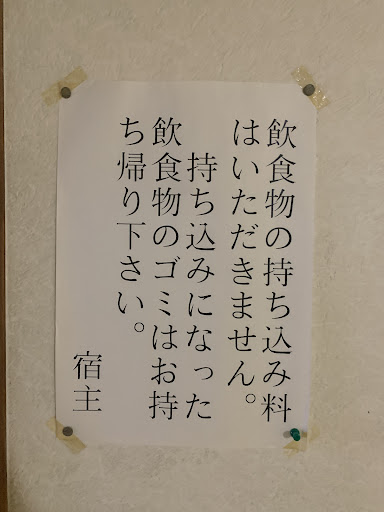 飲食物の持ち込み料
はいただきません。
持ち込みになった
飲食物のゴミはお持
ち帰り下さい。
宿主